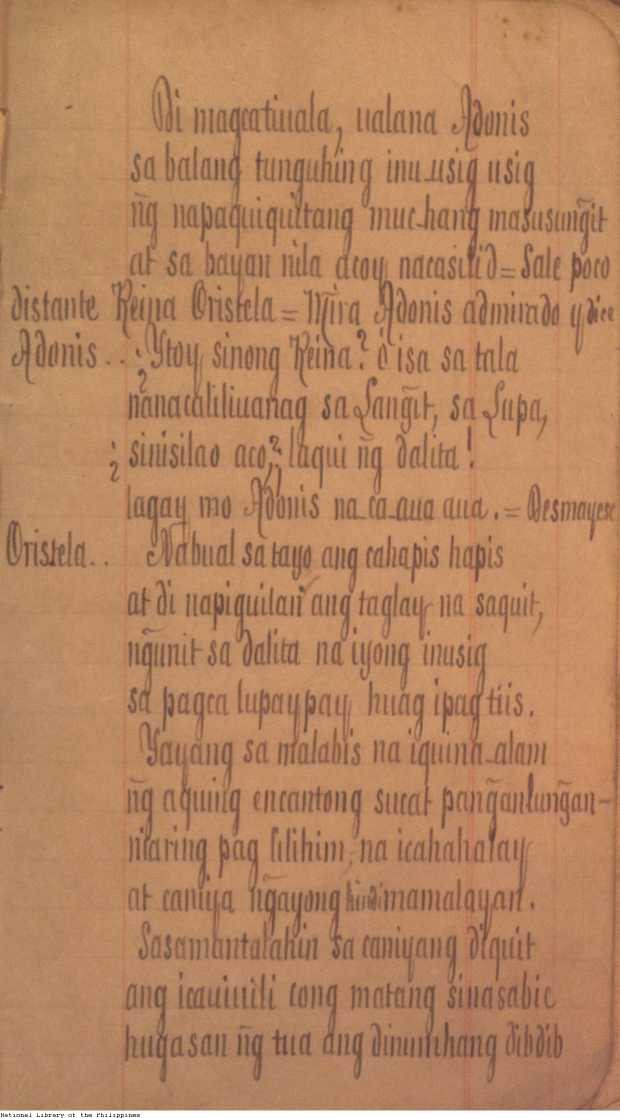 Di magcatiuala, ualana Adonis
sa balang tunguhing inu-usig usig
ñg napaquiquitang muc-hang masusung̃it
at sa bayan nila acoy nacasilid = Sale poco
distante Reina Oristela = Mira Adonis admirado y dice
Adonis.. ¿Ytoy sinong Reina? ó isa sa tala
nanacaliliuanag sa Lang̃it, sa Lupa,
¿sinisilao aco,? laqui ñg dalita!
lagay mo Adonis na-ca-aua aua. = Desmayese
Oristela.. Nabual sa tayo ang cahapis hapis
at di napiguilan ang taglay na saquit,
ng̃unit sa dalita na iyong inusig
sa pagca lupaypay huag ipag tiis.
Yayang sa malabis na iquina-alam
ñg aquing encantong sucat pang̃anlung̃an-
niaring pag lilihim, na icahahalay
at caniya ng̃ayong hindi mamalayan.
Sasamantalahin sa caniyang diquit
ang icauiuili cong matang sinasabic
hugasan ñg tua ang dinumhang dibdib
National Library of the Philippines